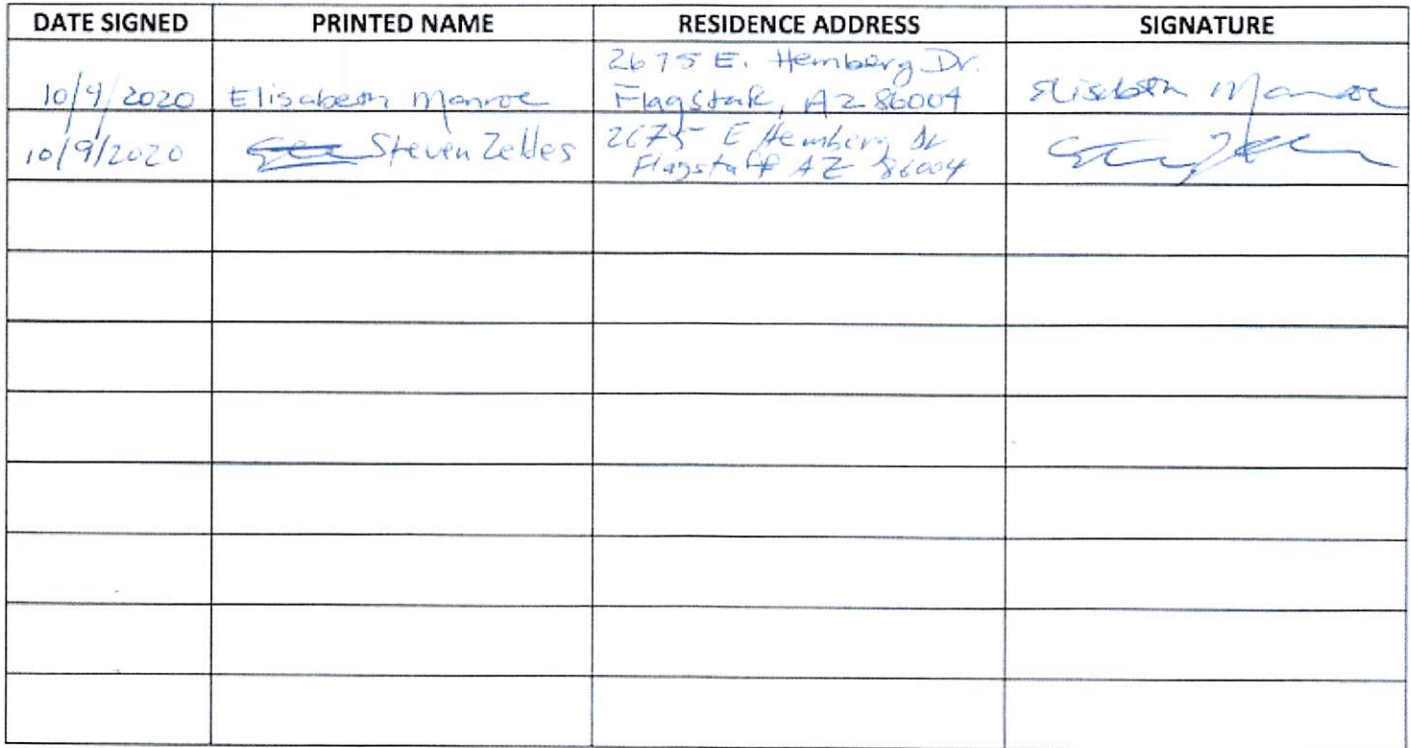 DATE SIGNED PRINTED NAME RESIDENCE ADDRESS SIGNATURE
2675 E. Hemberg Dr.
10/9/2020 Elisabeth Monroe Flagstaff, AZ 86004 Elisabeth Monroe
10/9/2020 Steven Zelles 2675 E Hemberg Dr
Flagstaff AZ 86004